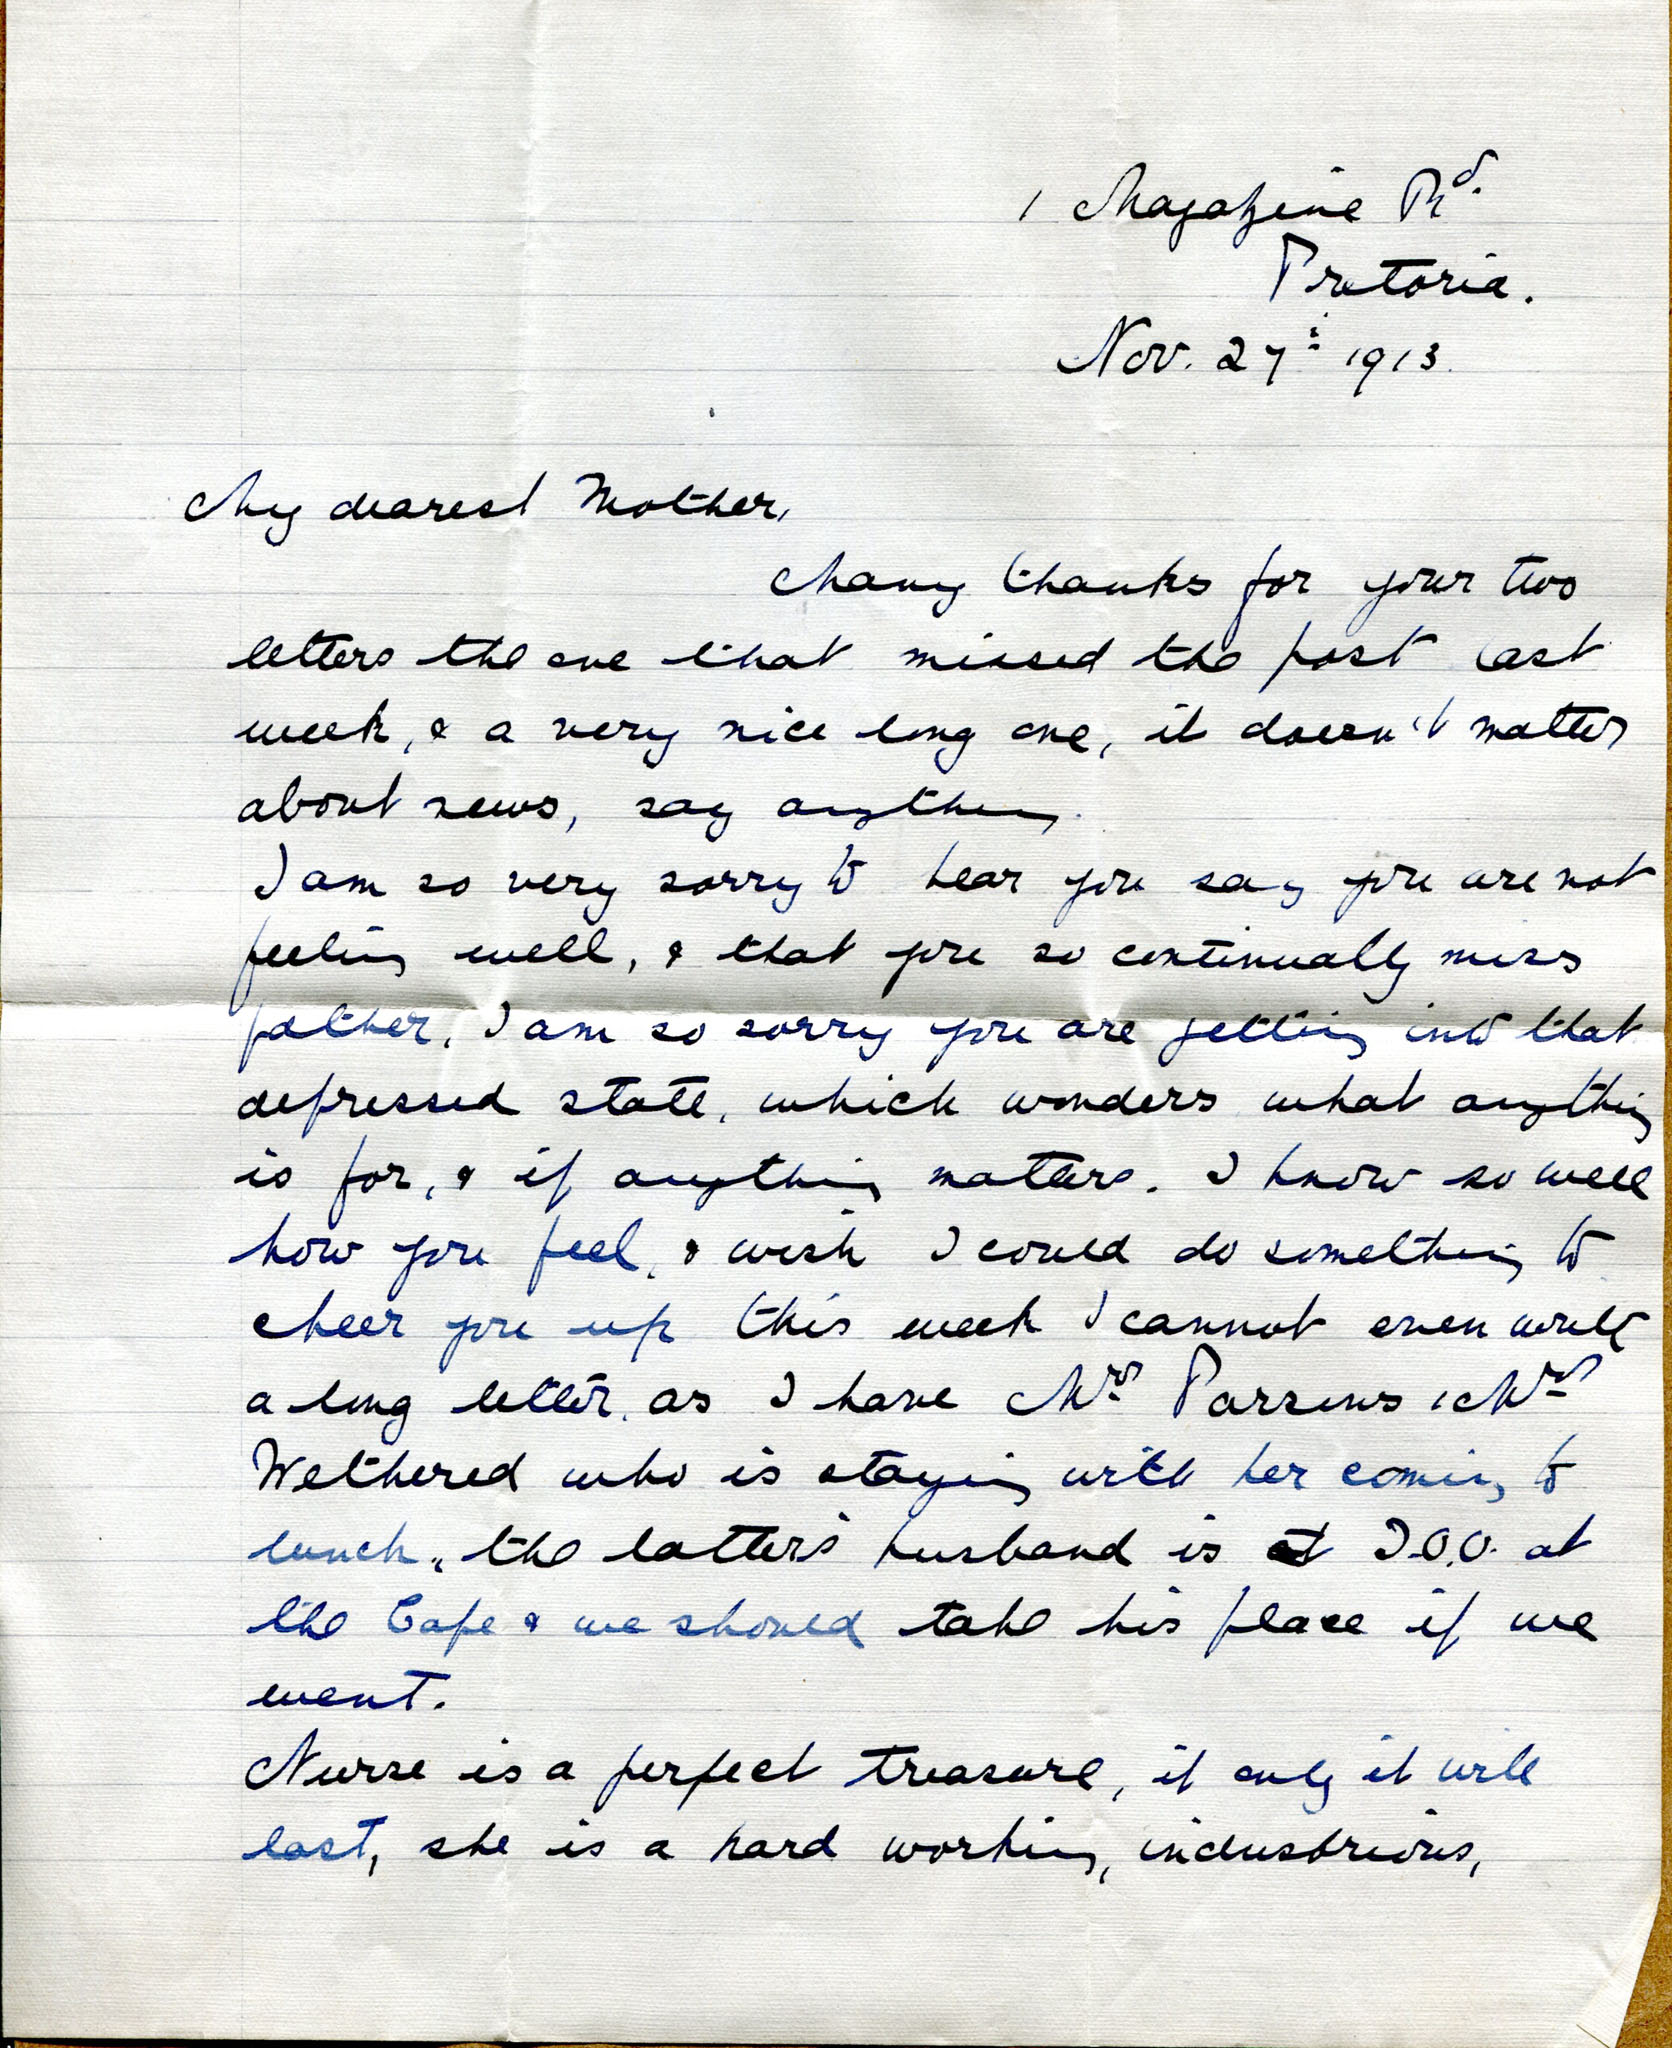 1 Magazine Rd.
Pretoria.
Nov. 27th 1913.
My dearest Mother,
Many thanks for your two
letters the one that missed the post last
week, & a very nice long one, it doesn't matter
about news, say anything.
I am so very sorry to hear you say you are not
feeling well, & that you so continually miss
father, I am so sorry you are getting into that
depressed state, which wonders what anything
is for, & if anything matters. I know so well
how you feel, & wish I could do something to
cheer you up this week I cannot even write
a long letter, as I have Mrs Parsons & Mrs
Wethered who is staying with her coming to
lunch, the latter's husband is I.O.O. at
the Cape & we should take his place if we
went.
Nurse is a perfect treasure, if only it will
last, she is a hard working, industrious,